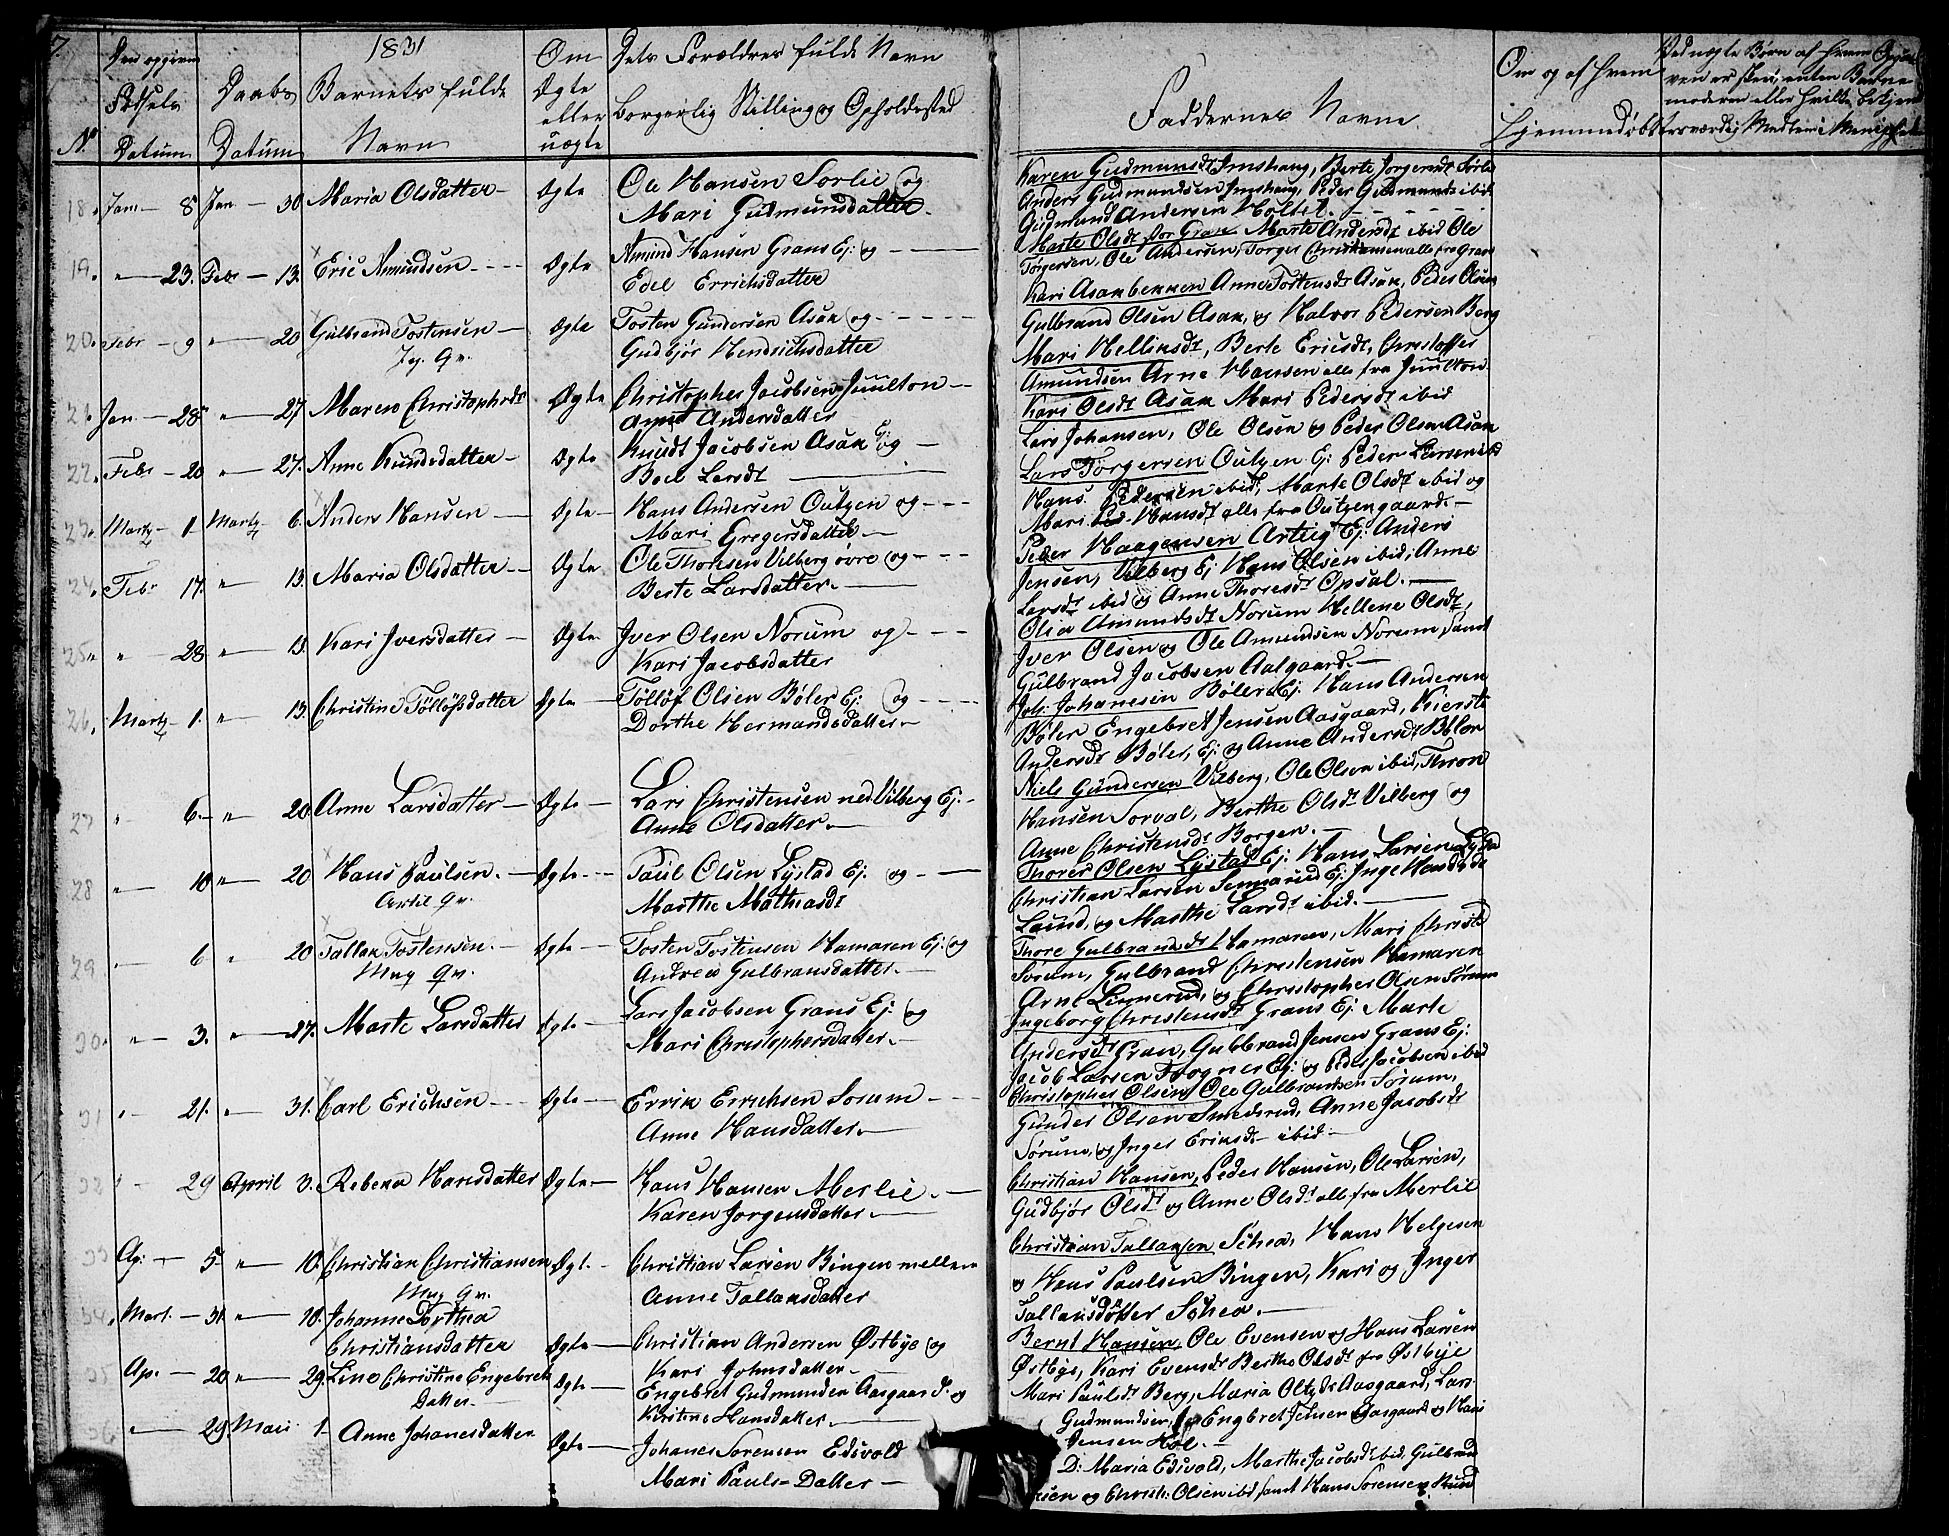 7.
1831
N.
Den opgivne
Fødsels
Datum
Daabs
Datum
Barnets fulde
Navn
Om
Ægte
eller
uægte
Dets Forældres fulde Navn
Borgerlig Stilling og Opholdested
Faddernes Navne
Om og af hvem
hjemmedøbt
18. Jan. 8 Jan. 30 Maria Olsdatter Ægte Ole Hansen Sørlie og
Mari Gudmundsdatter
19. " 23. Febr 13. Eric Amundsen Ægte Amund Hansen Grans Ej: og
Edel Errichsdatter
20. Febr 9 " 20 Gulbrand Tostensen Ægte Tosten Gundersen Asak og
Gudbjør Hendrichsdatter
21. Jan 28 " 27 Maren Christophrdtr Ægte Christopher Jacobsen Juulton
Anne Andersdatter
22. Febr 20 " 27. Anne Knudsdatter Ægte Knudt Jacobsen Asak Ej: og
Boel Larsdt
23. Marty 1. Marty 6. Anders Hansen Ægte Hans Andersen Outzen og
Mari Gregersdatter
24. Febr 17. " 13. Maria Olsdatter Ægte Ole Thoresen Vilberg øvre og
Berte Larsdatter
25. " 28 " 13. Kari Iversdatter Ægte Iver Olsen Norum og
Kari Jacobsdatter
26. Marty 1. " 13. Christine Tølløfsdatter Ægte Tølløf Olsen Bøler Ej: og
Dorthe Hermandsdatter
27 " 6. " 20. Anne Larsdatter Ægte Lars Christensen ned. Vilberg Ej:
Anne Olsdatter
28 " 10 " 20 Hans Paulsen Ægte Paul Olsen Lystad Ej. og
Marthe Mathiasdt
29 " 6 " 20 Tallak Tostensen Ægte Tosten Tostensen Hamaren Ej: og
Andrea Gulbransdatter
30. " 3. " 27. Marte Larsdatter Ægte Lars Jacobsen Grans Ej: og
Mari Christophersdatter
31 " 21. " 31. Carl Erichsen Ægte Errik Errichsen Sorum
Anne Hansdatter
32 " 29 April 3. Rebeca Hansdatter Ægte Hans Hansen Merlie
Karen Jorgensdatter
33 Ap: 5. " 10. Christian Christiansen Ægte Christian Larsen Bingen mellem
Anne Tallaksdatter
34. Mart. 31 " 10. Johanne Dorthea
Christiansdatter Ægte Christian Andersen Østbye og
Kari Johnsdatter
35 Ap. 20 " 29. Line Christine Engebrets
Datter Ægte Engebret Gudmundsen Aasgaard og
Kirstine Hansdatter
36 " 29. Maii 1. Anne Johanesdatter Ægte Johanes Sorensen Edsvold
Mari Pauls=Datter
Anders Gudmundsen
Gudmund Andersen Holtet
Marte Olsdt Gran Marte Andersdt ibid Ole
Torgersen, Ole Andersen, Torger Christiansen alle fra Gran
Kari Asakbekken Anne Tostensdt Asak, Peder Olsen
Gulbrand Olsen Asak, og Halvor Pedersen Berg
Mari Hellinsdt, Berte Ericsdt, Christoffer
Amundsen Arne Hansen alle fra Juulton
Kari Olsdt Asak Mari Pedersdt ibid
Lars Johansen, Ole Olsen og Peder Olsen Asak
Lars Torgersen Outzen Ej: Peder Larsen ibid
Hans Pedersen ibid, Marte Olsdt ibid og
Mari Hansdt alle fra Outzengaard.
Peder Haagensen Arteig Ej: Anders
Jensen, Vilberg Ej Hans Olsen ibid, Anne
Larsdt ibid og Anne Thoresdt Opsal.
Olia Amundsdt Norum Hellene Olsdt,
Iver Olsen og Ole Amundsen Norum samt
Gulbrand Jacobsen Aalgaard.
Joh: Johanesen Bøler Ej: Hans Andersen
Bøler Engebret Jensen Aasgaard, Kiersti
Andersdt Bøler, Ej: og Anne Andersdt Bøler
Niels Gundersen Vilberg, Ole Olsen ibid, Thron
Hansen Sorval, Berthe Olsdt Vilberg og
Anne Christensdt Borgen.
Thorer Olsen Lystad Ej: Hans Larsen Lystad
Christian Larsen
Lund, og Marthe Larsdt ibid.
Thore Gulbrandsdt Hamaren, Mari Christd
Sorum, Gulbrand Christensen Hamaren
Arne Linnerud, og Christopher Olsen Sørum
Ingeborg Christensdt Grans Ej: Marte
Andersdt Gran, Gulbrand Jensen Grans Ej:
Jacob Larsen Frogner Ej: og Peder Jacobsen ibid
Christopher Olsen, Ole Gulbransen Sorum,
Gunder Olsen Smedsrud, Anne Jacobsdt
Sørum, og Inger Eriksdt ibid
Christian Hansen, Peder Hansen, Ole Larsen,
Gudbjør Olsdt og Anne Olsdt alle fra Merlie
Christian Tallaksen Schea, Hans Helgesen
og Hans Paulsen Bingen, Kari og Inger
Tallaksdøtter Schea.
Bernt Hansen, Ole Evensen og Hans Larsen
Østbye, Kari Evensdt Berthe Olsdt fra Østbye
Mari Paulsdt Berg, Maria Aasgaard, Lars
Gudmundsen, Engbret Jensen Aasgaard og Hans
Jensen Hol.
D: Maria Edsvold, Marthe Jacobsdt ibid, Gulbrand
og Christ: Olsen ibid samt Hans Sorensen